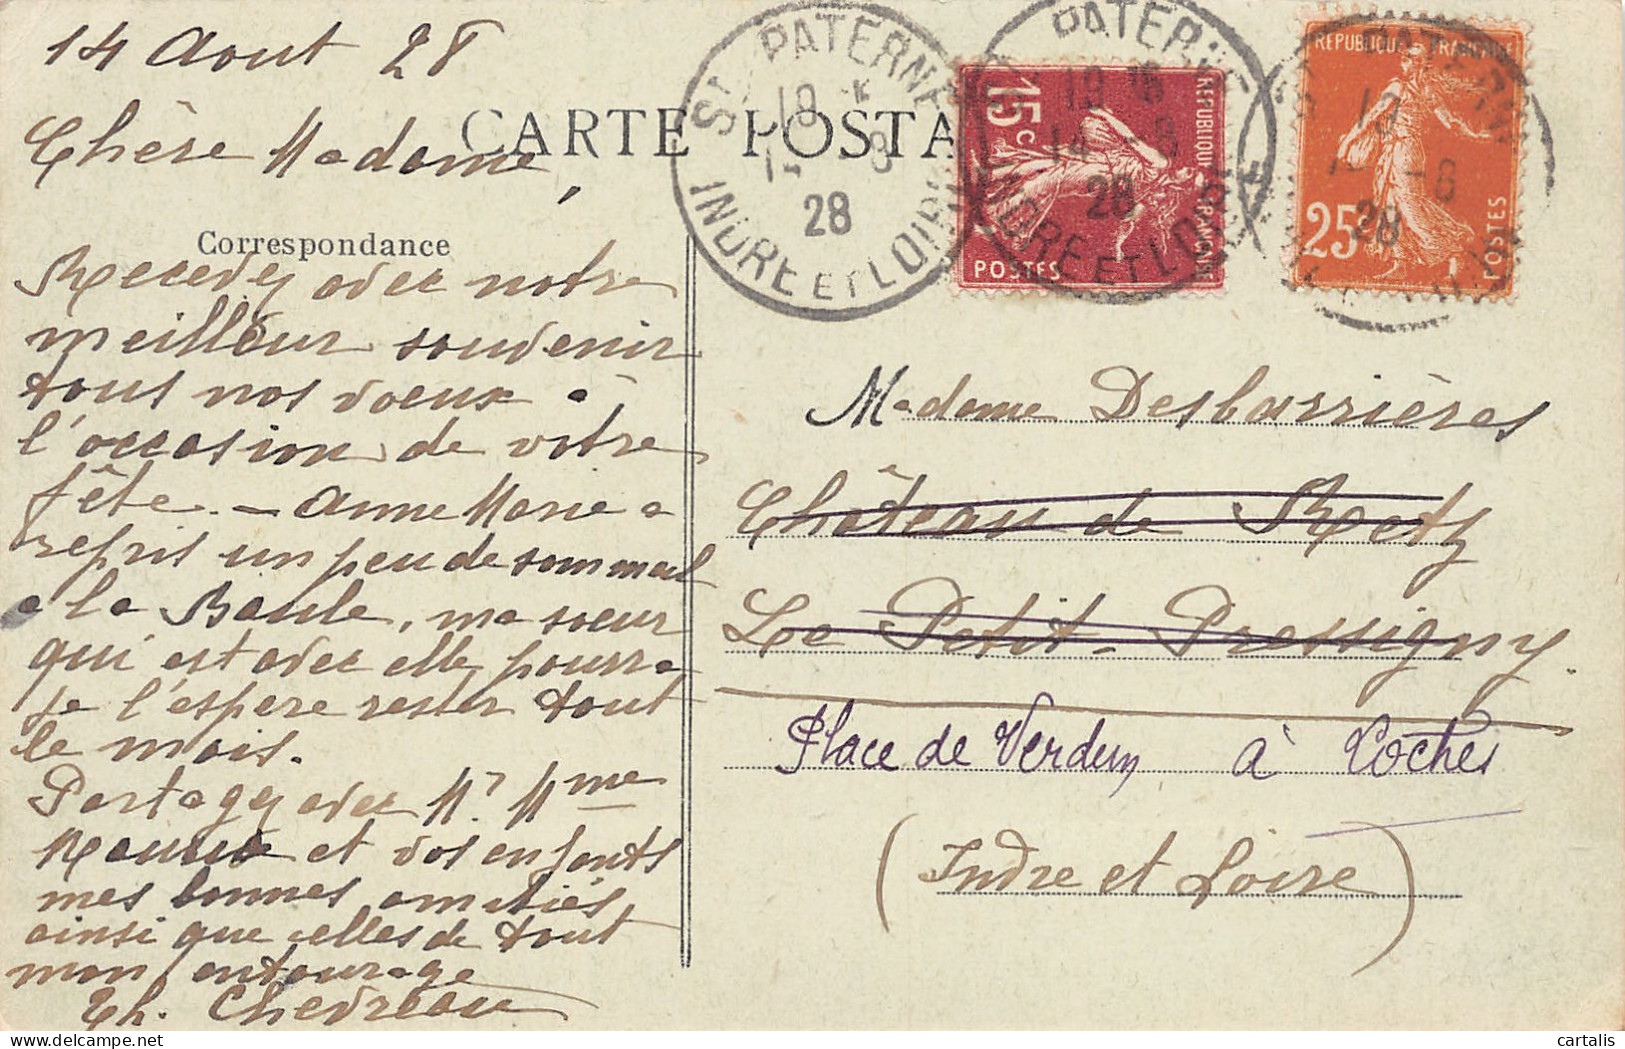 14 Aout 28
Chère Madame,
CARTE POSTA
Correspondance
Recevez avec notre
meilleur souvenir
tous nos voeux à
l'occasion de votre
fête. - Anne Marie a
repris un peu de sommeil
a la Baule, ma soeur
qui est avec elle pourra
je l'espere rester tout
le mois.
Partagez avec Mr Mme
et vos enfants
mes bonnes amitiés,
ainsi que celles de tout
mon entourage
Th. Chevreau
ST PATERNE
19
28
INDRE ET LOIRE
PATERNE
19 15
14 -8
28
INDRE ET LOIRE
15c
REPUBLIQUE FRANÇAISE
POSTES
REPUBLIQUE FRANÇAISE
25c
POSTES
PATERNE
19
28
Madame Desbarrières
Château de Retz
Le Petit-Pressigny
Place de Verdun à Loches
(Indre et Loire)
cartalis